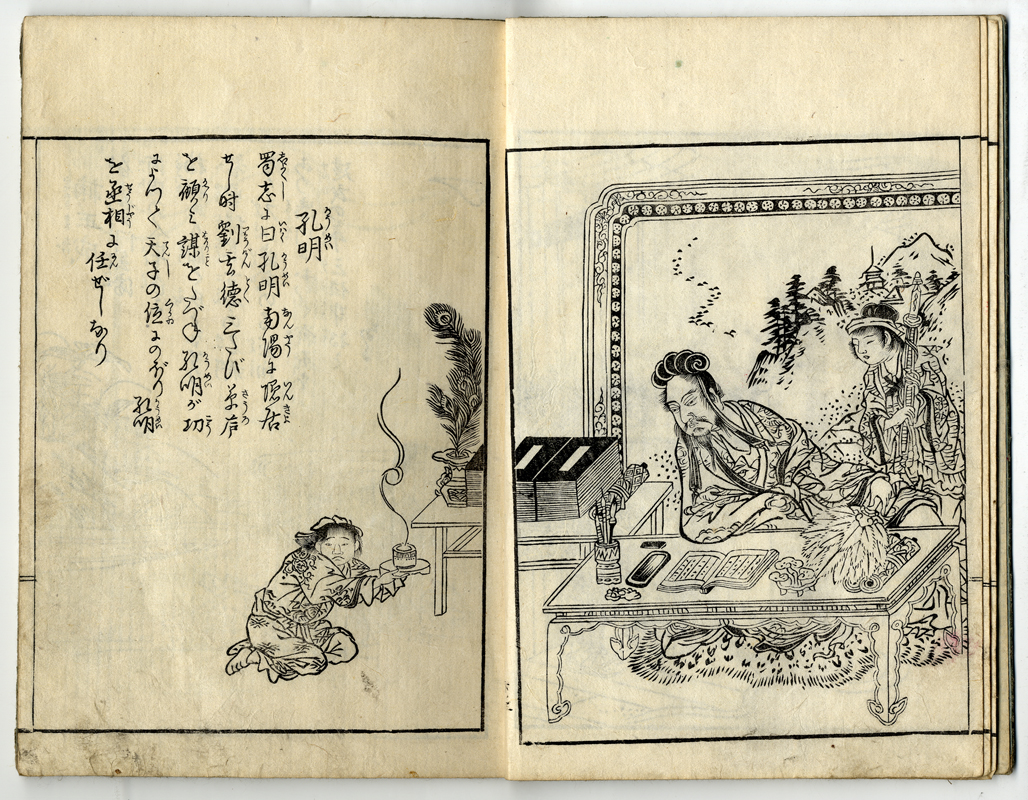 孔明
蜀志に曰孔明南陽に隠居
せし時劉玄徳三たび草庐
を顧み謀をたづね孔明が功
によつて天子の位にのぼり孔明
を丞相に任ぜしなり